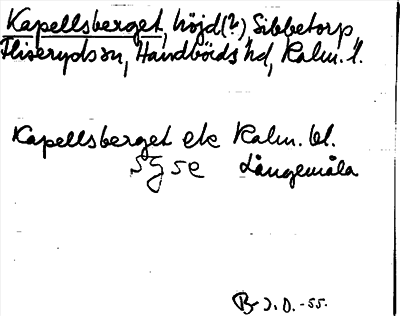 Kapellsberget, höjd(?) Sibbetorp,
Fliseryds sn, Handbörds hd, Kalm. l.
Kapellsberget ek Kalm. bl.
5 g se Långemåla
J.D. -55.